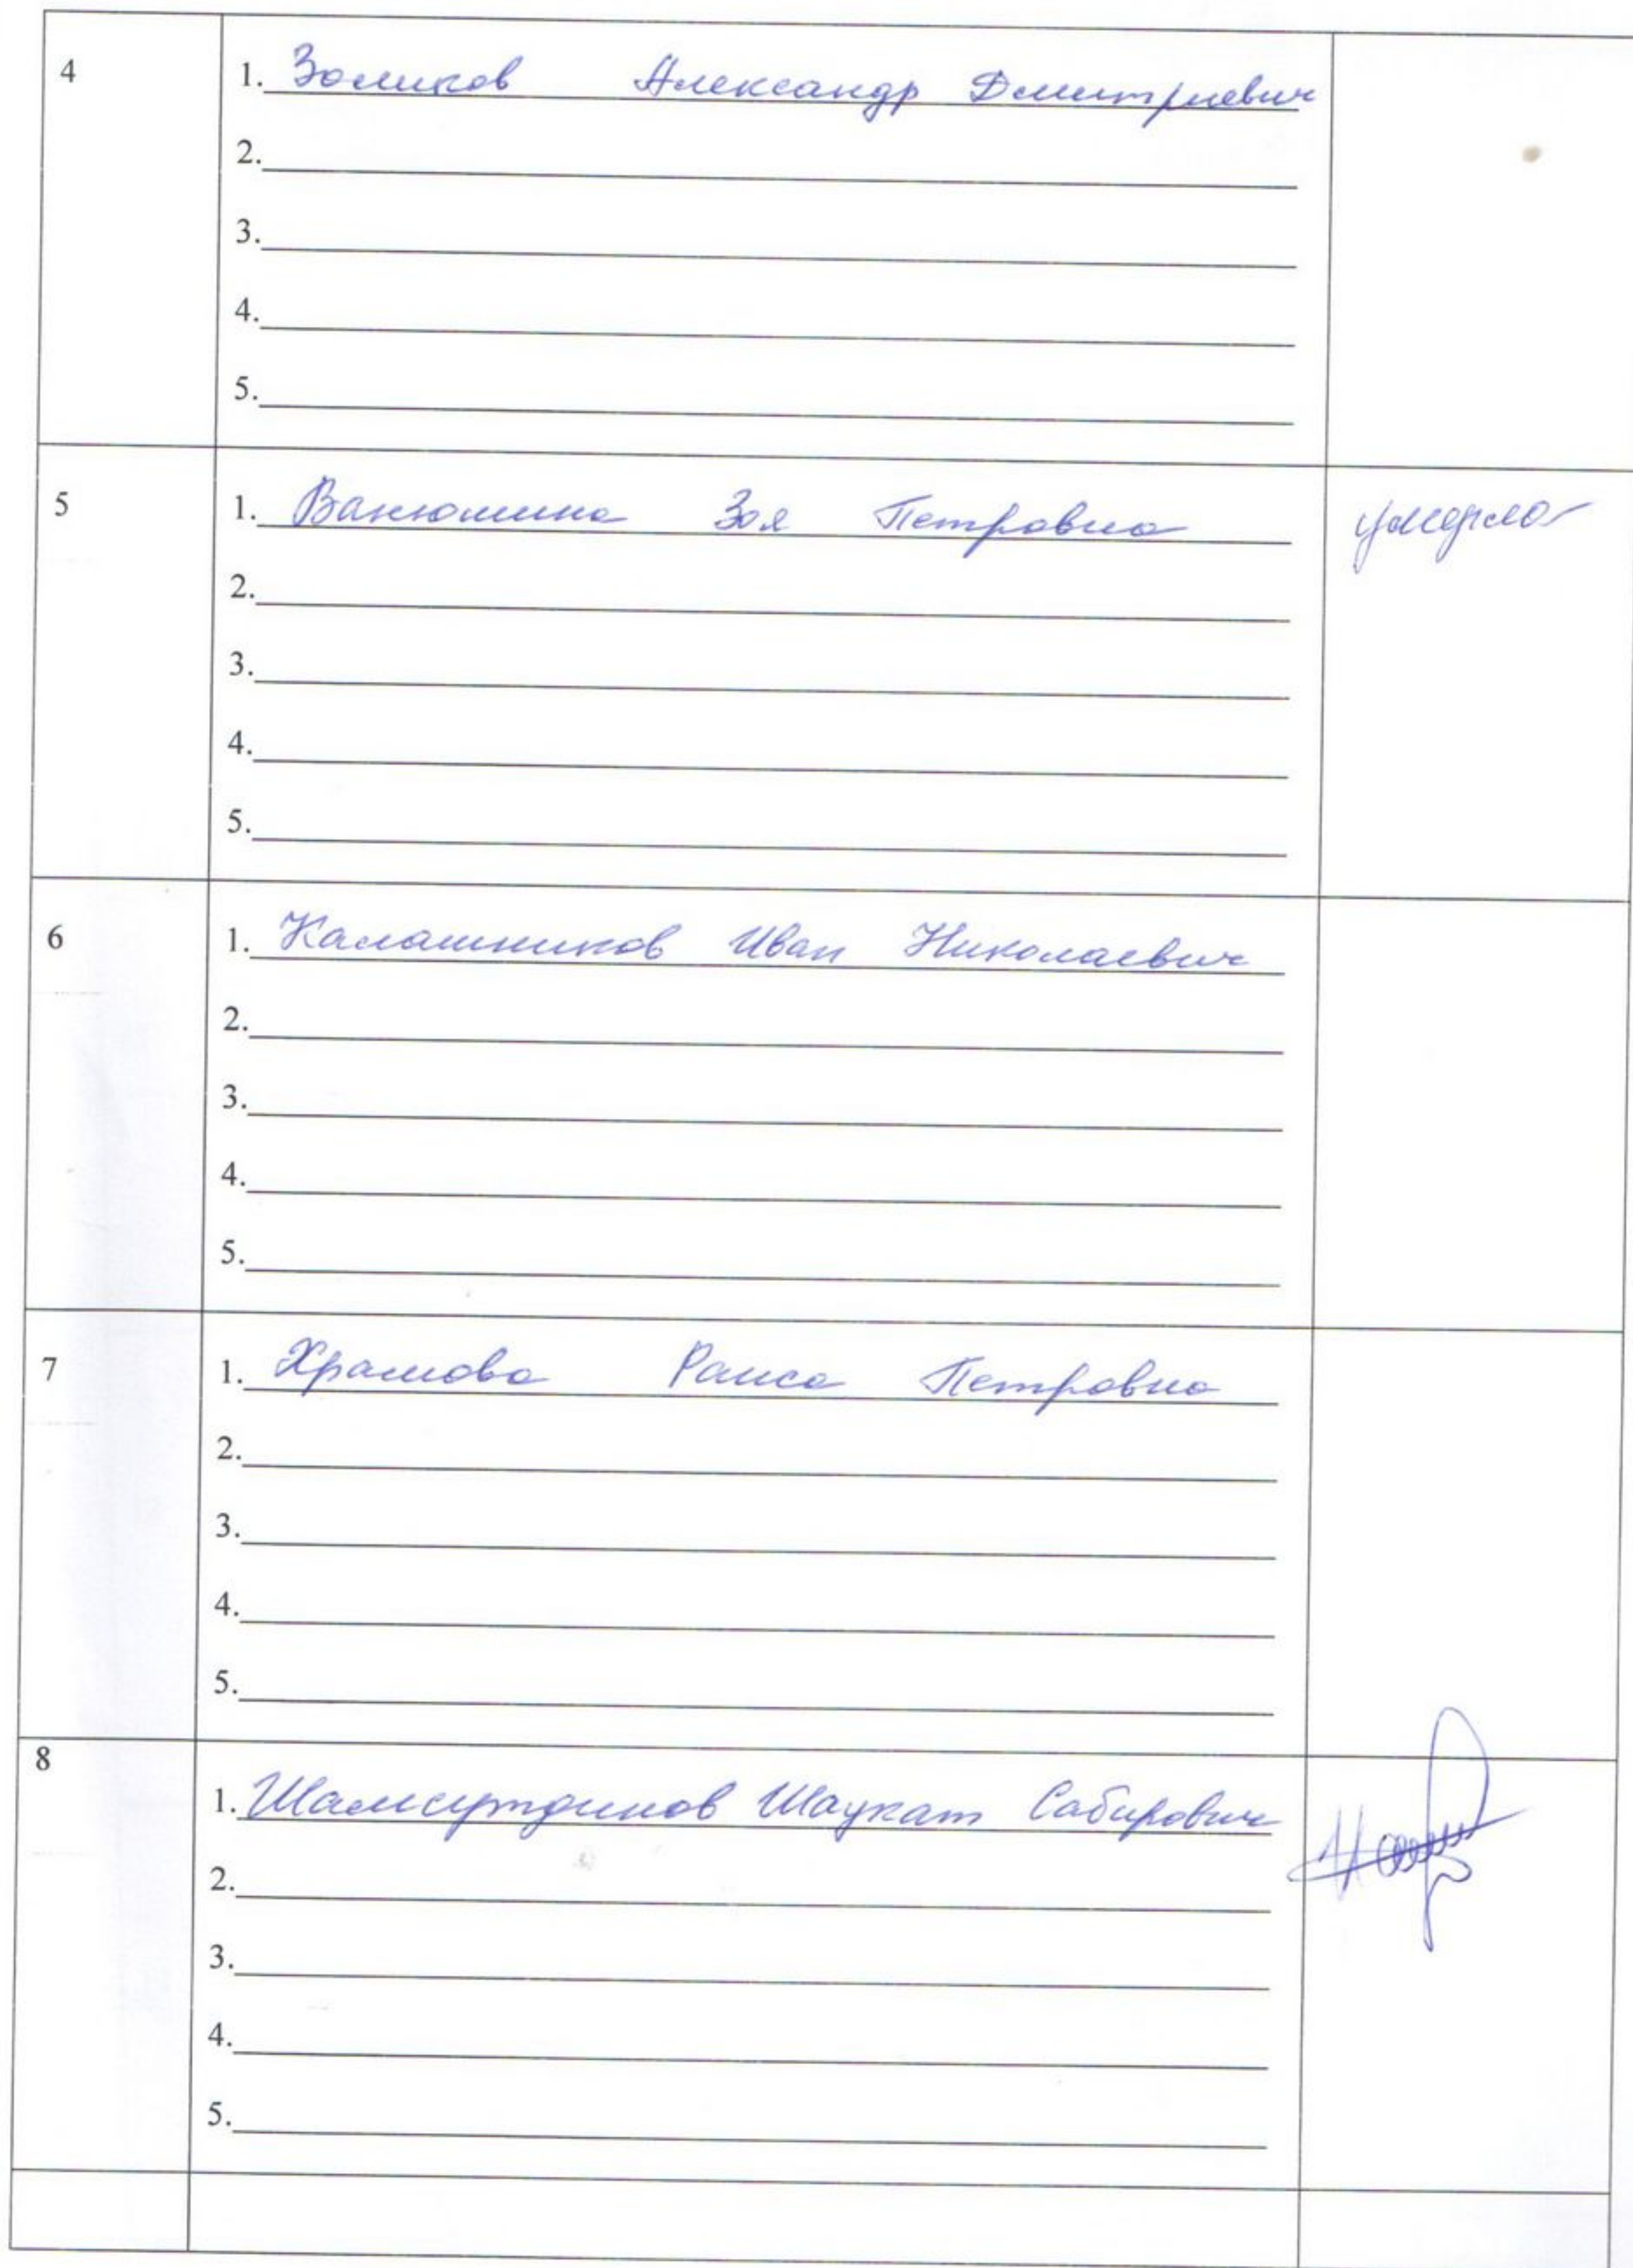 4
1. Зомиков Александр Дмитриевич
2.
3.
4.
5.
5
1. Ванюшина Зоя Петровна умерла
2.
3.
4.
5.
6
1. Калашников Иван Николаевич
2.
3.
4.
5.
7
1. Храмова Раиса Петровна
2.
3.
4.
5.
8
1. Шамсутдинов Шаукат Сабирович
2.
3.
4.
5.